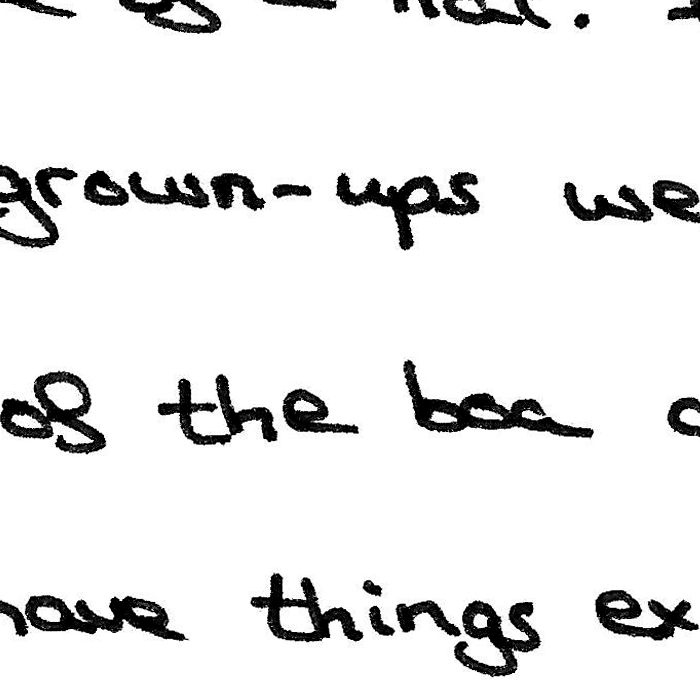 hat.
grown-ups we
of the boa
have things ex